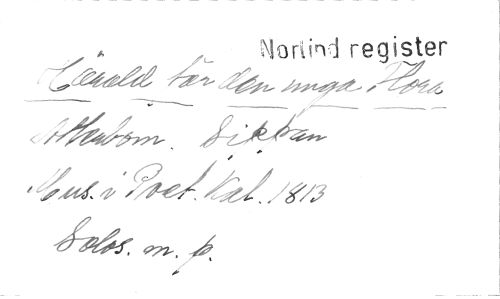 Norlind register
Härold tär den unga Flora
Atterbom. Sippan
Mus. i Poet. Kal. 1813
Solos. m. p.